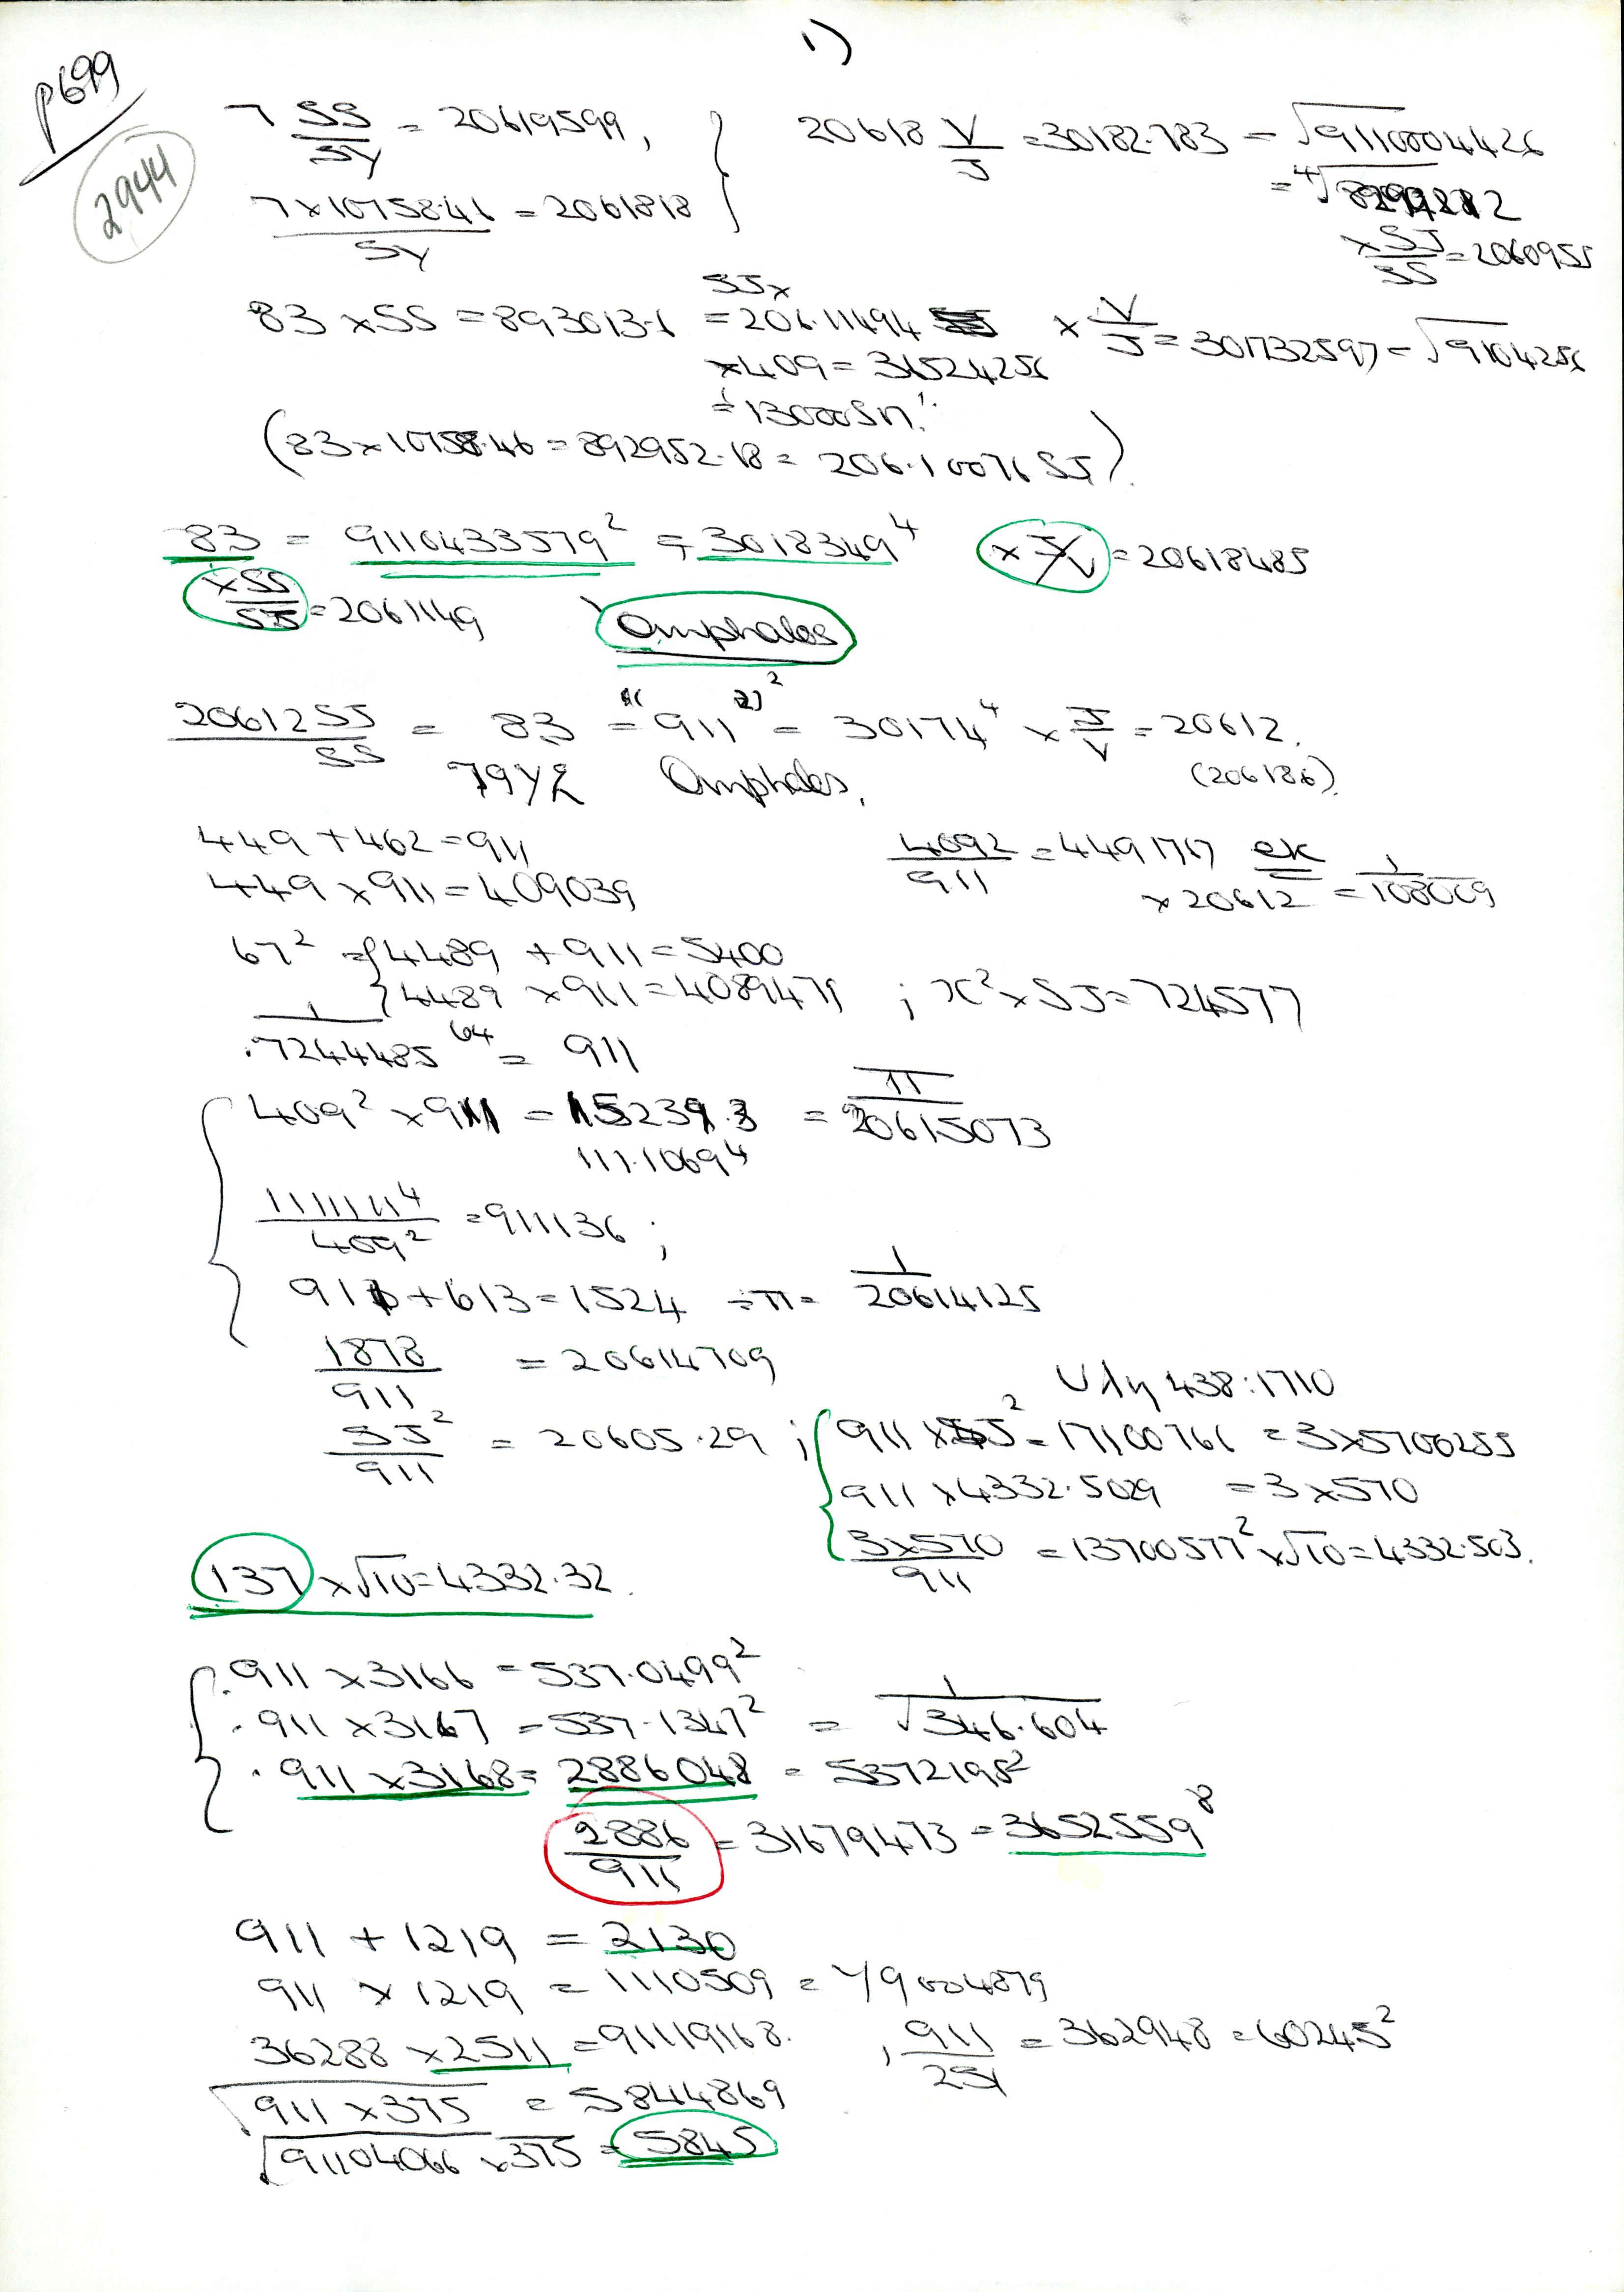 1)
p699
2944
7 SS/SY = 20619599,
7 x 10758.46 / SY = 2061818
20618 V/J = 30182.783 = √9110004426
x SJ/SS = 2060955
83 x SS = 893013.6 = 206.11494 SJx
x V/J = 301732597 = √9104256
x 409 = 36524256
= 13000 Sn!
(83 x 10758.46 = 892952.18 = 206.10076 SJ)
83 = 9110433579² = 3018349⁴ x J/V = 20618485
x SS/SJ = 2061149
Omphalos
20612 SJ/SS = 83 = "(911)"² = 30174⁴ x J/V = 20612.
(206186).
Omphalos.
449 + 462 = 911
449 x 911 = 409039
4092/911 = 4491767 ek
x 20612 = 1/108009
67² = { 4489 + 911 = 5400
4489 x 911 = 4089479 ; x² x SJ = 724577
1/.7244485⁶⁴ = 911
409² x 911 = 15239.3 = π/20615073
111.1069⁴
11111111⁴/409² = 911136 ;
911 + 613 = 1524 ÷ π = 1/20614125
1878/911 = 20614709
SJ²/911 = 20605.29 ;
438:1710
911 x SJ² = 17100761 = 3x5700255
911 x 4332.5029 = 3 x 570
3x570/911 = 13700577² x √10 = 4332.503.
137 x √10 = 4332.32.
.911 x 3166 = 537.0499²
.911 x 3167 = 537.1347² = 1/√346.604
.911 x 3168 = 2886048 = 5372195²
2886/911 = 31679473 = 3652559⁸
911 + 1219 = 2130
911 x 1219 = 1110509 = 1/9004879
36288 x 2511 = 91119168. , 911/251 = 362948 = 60245²
√911 x 375 = 5844869
√91104066 x 375 = 5845